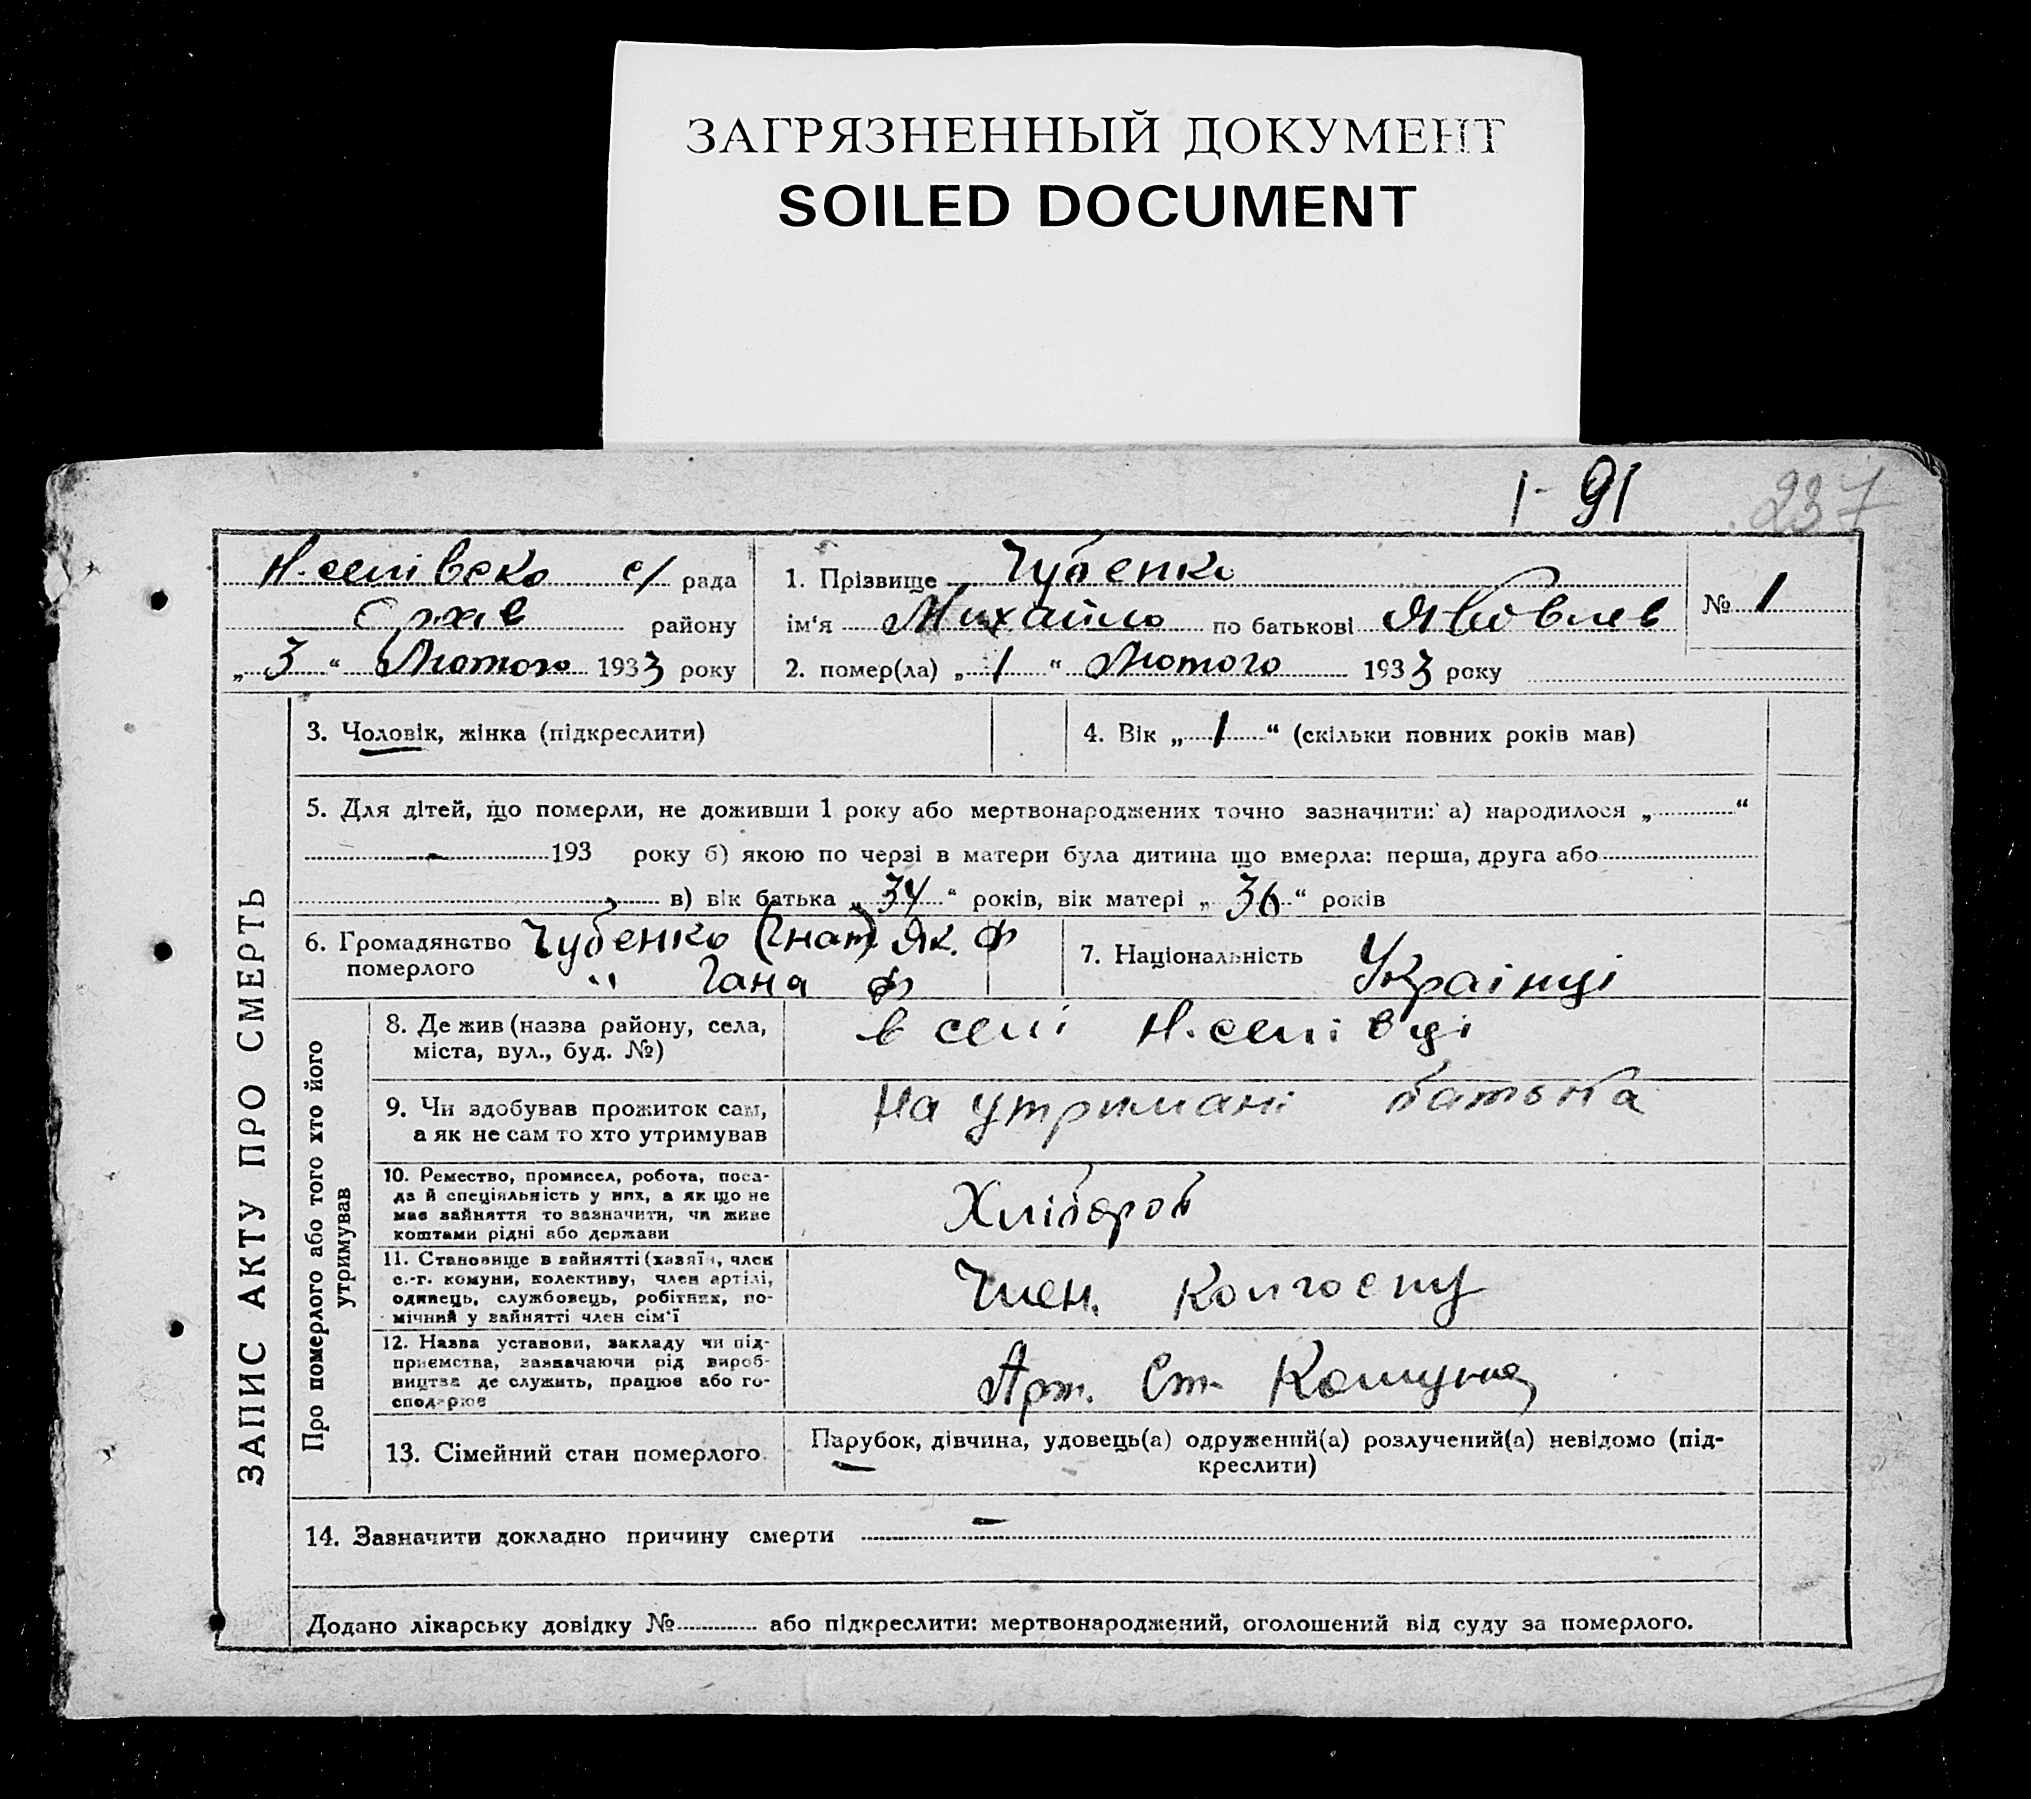 ЗАГРЯЗНЕННЫЙ ДОКУМЕНТ
SOILED DOCUMENT
1- 91
237
ЗАПИС АКТУ ПРО СМЕРТЬ
Н-селівско с/ рада
району
„3“ Лютого 1933 року
1. Прізвище Чубенко
ім‘я Михайло по батькові Яковлев
№ 1
2. помер(ла) „1“ Лютого 1933 року
3. Чоловік, жінка (підкреслити)
4. Вік „1“ (скільки повних років мав)
5. Для дітей, що померли, не доживши 1 року або мертвонароджених точно зазначити: а) народилося „ “
- 193 року б) якою по черзі в матери була дитина що вмерла: перша, друга або
в) вік батька „34“ років, вік матері „36“ років
6. Громадянство Чубенко (Гнат) Як. Ф
померлого " Гана Ф
7. Національність Українці
Про померлого або того хто його
утримував
8. Де жив (назва району, села,
міста, вул., буд. №)
в селі Н-селівці
9. Чи здобував прожиток сам,
а як не сам то хто утримував
На утримані батька
10. Ремество, промисел, робота, поса-
да й спеціяльність у них, а як що не
має зайняття то зазначити, чи живе
коштами рідні або держави
Хлібороб
11. Становище в зайнятті (хазяїн, член
с.-г. комуни, колективу, член артілі,
одинець, службовець, робітник, по-
мічний у зайнятті член сім‘ї
Член. Колгоспу
12. Назва установи, закладу чи під-
приємства, зазначаючи рід вироб-
ництва де служить, працює або го-
сподарює
Арт. Ст. Комуна
13. Сімейний стан померлого
Парубок, дівчина, удовець(а) одружений(а) розлучений(а) невідомо (під-
креслити)
14. Зазначити докладно причину смерти -
Додано лікарську довідку № або підкреслити: мертвонароджений, оголошений від суду за померлого.